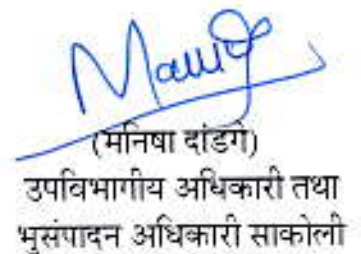 (मनिषा दांडगे)
उपविभागीय अधिकारी तथा
भुसंपादन अधिकारी साकोली